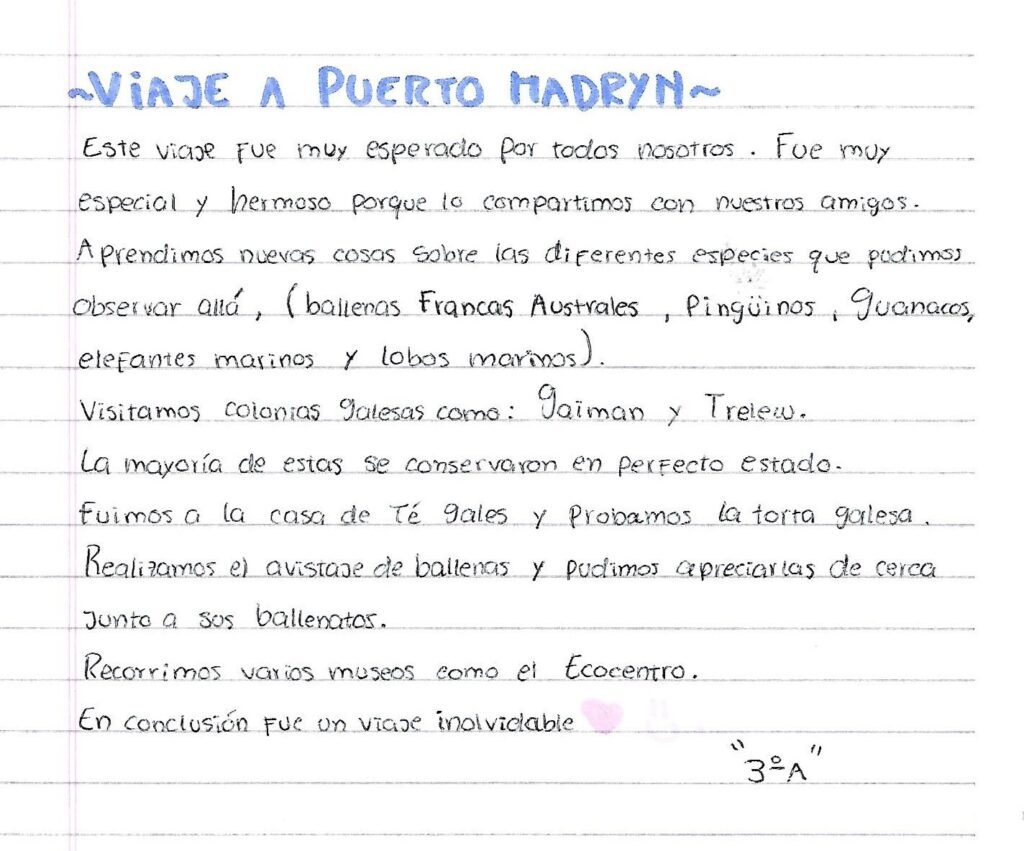 ~VIAJE A PUERTO MADRYN~
Este viaje fue muy esperado por todos nosotros. Fue muy
especial y hermoso porque lo compartimos con nuestros amigos.
Aprendimos nuevas cosas sobre las diferentes especies que pudimos
observar allá, (ballenas Francas Australes, Pingüinos, guanacos,
elefantes marinos y lobos marinos).
Visitamos colonias galesas como: gaiman y Trelew.
La mayoría de estas se conservaron en perfecto estado.
Fuimos a la casa de Té gales y probamos la torta galesa.
Realizamos el avistaje de ballenas y pudimos apreciarlas de cerca
junto a sus ballenatos.
Recorrimos varios museos como el Ecocentro.
En conclusión fue un viaje inolvidable
"3ºA"